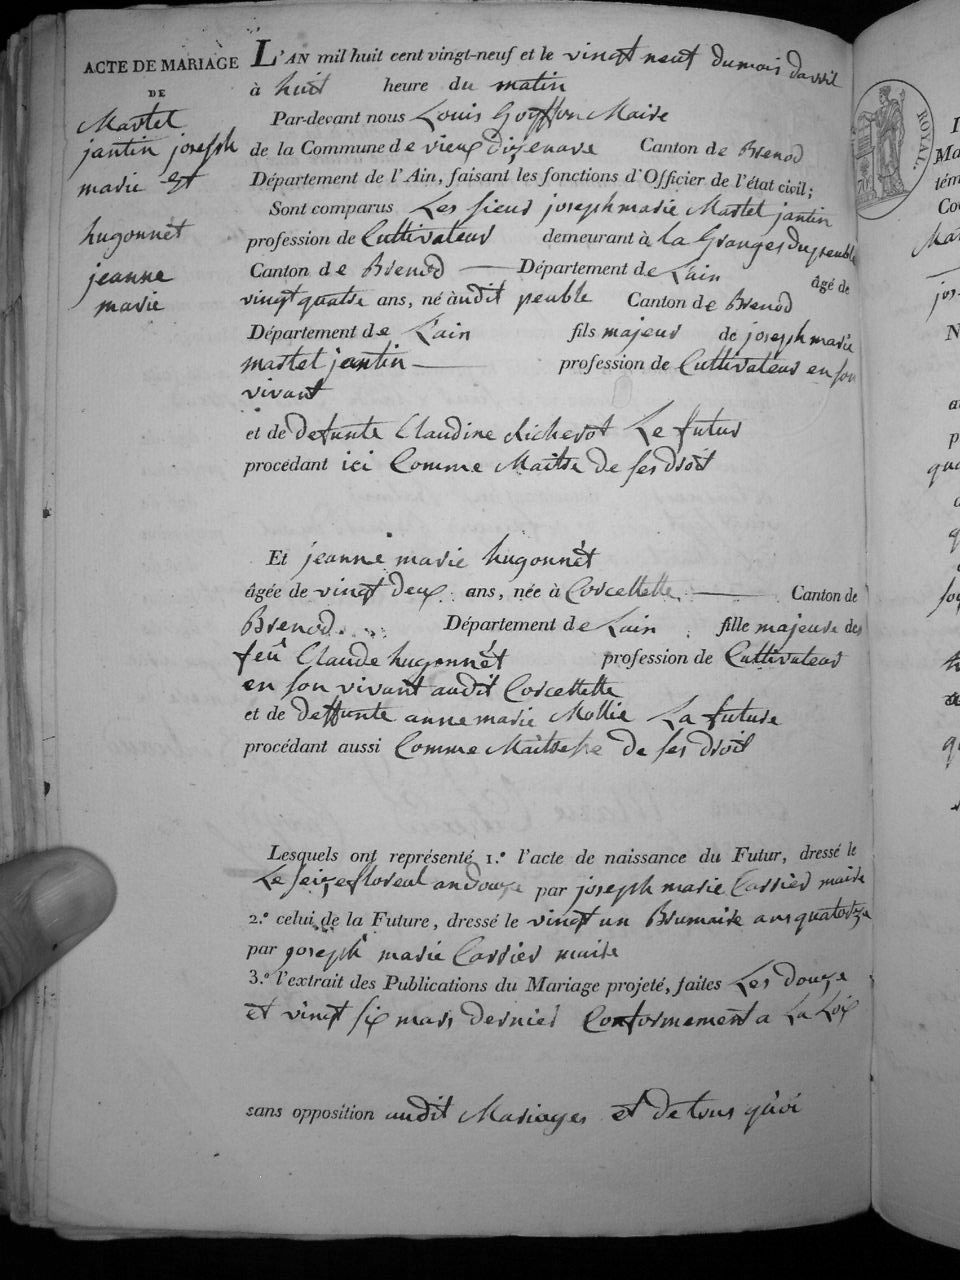 ACTE DE MARIAGE
DE
Martel
jantin joseph
marie et
hugonnét
jeanne
marie
L'AN mil huit cent vingt-neuf et le vingt neuf du mois davril
à huit heure du matin
Par-devant nous Louis Goyffon Maire
de la Commune de vieux dizenave Canton de Brenod
Département de l'Ain, faisant les fonctions d'Officier de l'état civil;
Sont comparus Les sieur joseph marie Martel jantin
profession de Cultivateur demeurant à la Granges du peuble
Canton de Brenod Département de Lain âgé de
vingt quatre ans, né àudit peuble Canton de Brenod
Département de L'ain fils majeur de joseph marie
martel jantin profession de Cultivateur en son
vivant
et de defunte Claudine Richerot Le futur
procédant ici Comme Maitre de ses droit
Et jeanne marie hugonnét
âgée de vingt deux ans, née à Corcellette Canton de
Brenod Département de Lain fille majeure de
feû Claude hugonnét profession de Cultivateur
en son vivant audit Corcellette
et de deffunte anne marie Mollie La future
procédant aussi Comme Maitresse de ses droit
Lesquels ont représenté 1.° l'acte de naissance du Futur, dressé le
Le seize floreal an douze par joseph marie Carrier maire
2.° celui de la Future, dressé le vingt un Brumaire ans quatorze
par joseph marie Carrier maire
3.° l'extrait des Publications du Mariage projeté, faites Les douze
et vingt six mars dernier Conformement a La Loix
sans opposition audit Mariages et de tous quoi
ROYAL.